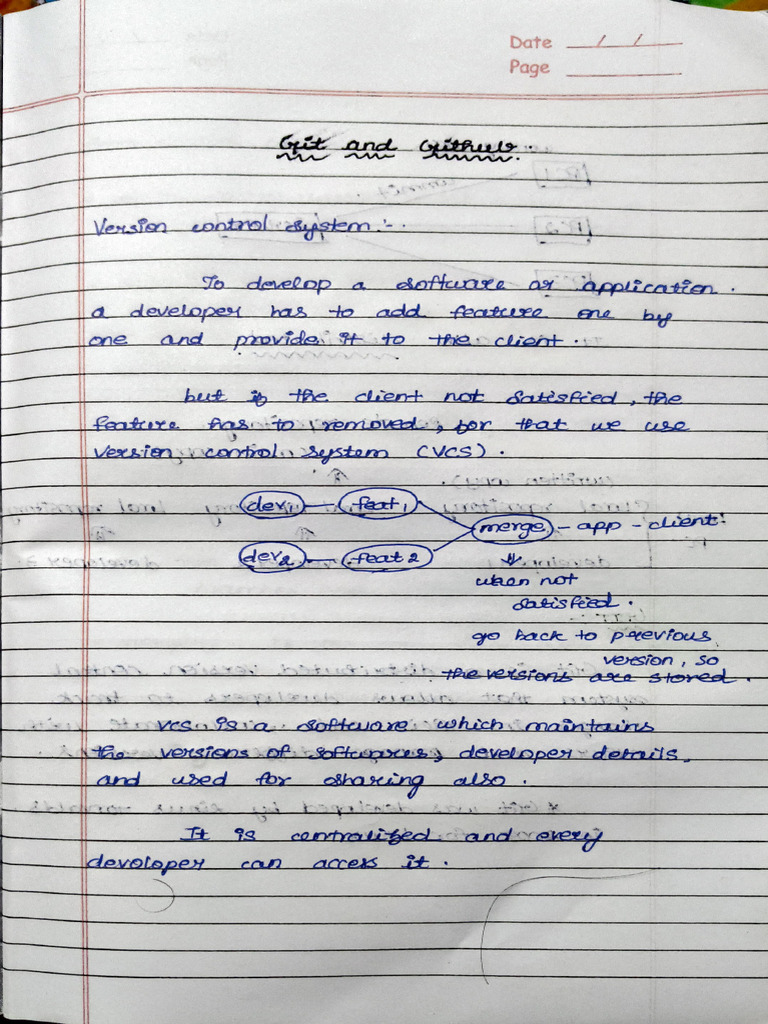 Date / /
Page
Git and Github.
Version control system :-.
To develop a software or application.
a developer has to add feature one by
one and provide it to the client.
but is the client not satisfied, the
feature has to removed, for that we use
version control system (VCS).
dev1 - feat1
merge - app - client!
dev2 - feat 2
when not
satisfied.
go back to previous
version, so
the versions are stored.
VCS is a software which maintains
the versions of softwares, developer details.
and used for sharing also.
It is centralized and every
developer can access it.